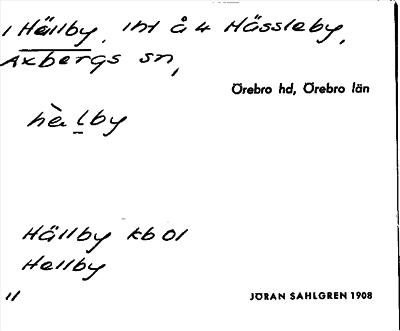 1 Hällby, int å 4 Hässleby,
Axbergs sn,
Örebro hd, Örebro län
hèlby
Hällby kb 01
Hellby
"
JÖRAN SAHLGREN 1908